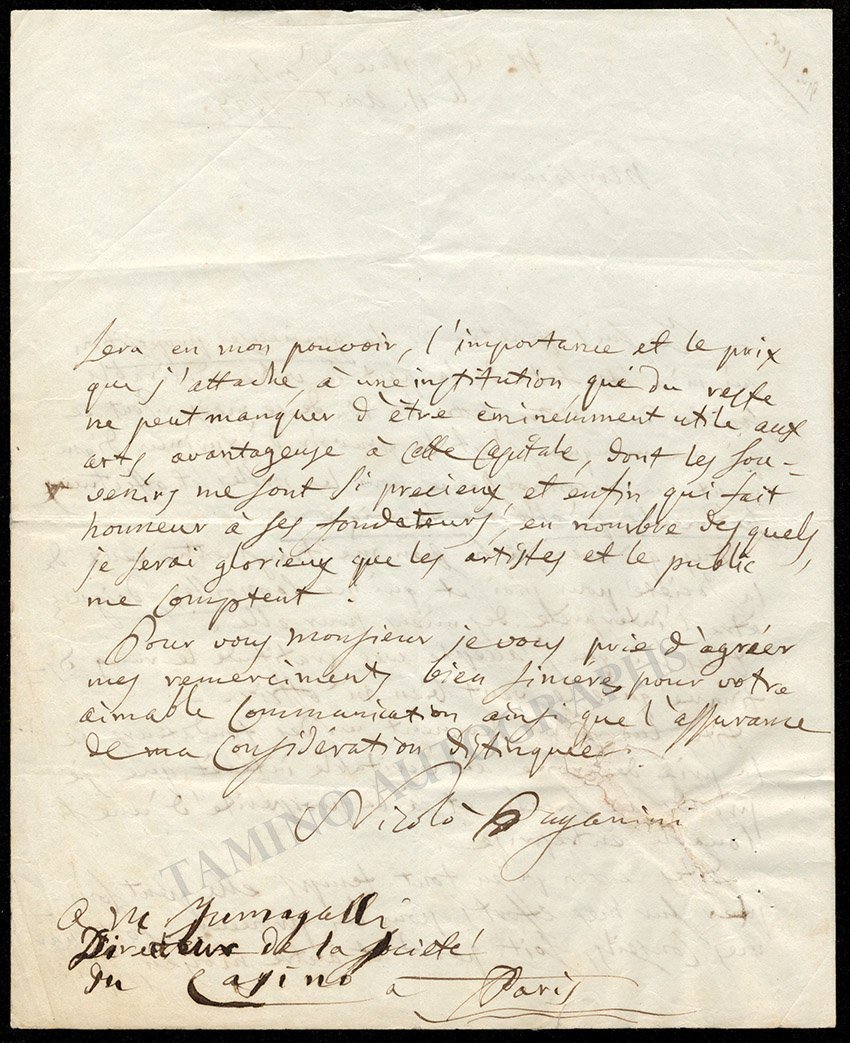 sera en mon pouvoir, l'importance et le prix
que j'attache, à une institution, qui du reste
ne peut manquer d'être èminemment utile aux
arts avantageuse à cette Capitale, dont les sou-
venirs me sont si precieux, et enfin qui fait
honneur à ses fondateurs, en nombre des quels,
je serai glorieux que les artistes et le public
me comptent.
Pour vous monsieur je vous prie d'agréer
mes remerciments bien sincères pour votre
aimable Communication ainsi que l'assurance
de ma Considération distinquée.
Nicolò Paganini
TAMINO AUTOGRAPHS
a M
Directeur de la Societé
du Casino a Paris